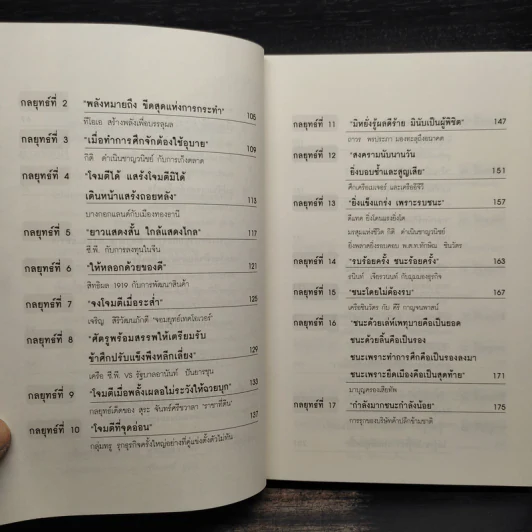 กลยุทธ์ที่ 2 "พลังหมายถึง ขีดสุดแห่งการกระทำ" 105
ทีโอเอ สร้างพลังเพื่อบรรลุผล
กลยุทธ์ที่ 3 "เมื่อทำการศึกจักต้องใช้อุบาย" 109
กิติ ดำเนินชาญวนิชย์ กับการเก็งตลาด
กลยุทธ์ที่ 4 "โจมตีได้ แสร้งโจมตีมิได้
เดินหน้าแสร้งถอยหลัง" 113
บางกอกแลนด์กับเมืองทองธานี
กลยุทธ์ที่ 5 "ยาวแสดงสั้น ใกล้แสดงไกล" 117
ซี.พี. กับการลงทุนในจีน
กลยุทธ์ที่ 6 "ให้หลอกด้วยของดี" 121
สิทธิผล 1919 กับการพัฒนาสินค้า
กลยุทธ์ที่ 7 "จงโจมตีเมื่อระส่ำ" 125
เจริญ สิริวัฒนภักดี "จอมยุทธ์เทคโอเวอร์"
กลยุทธ์ที่ 8 "ศัตรูพร้อมสรรพให้เตรียมรับ
ข้าศึกปรับแข็งพึงหลีกเลี่ยง" 129
เครือ ซี.พี. VS รัฐบาลอานันท์ ปันยารชุน
กลยุทธ์ที่ 9 "โจมตีเมื่อพลั้งเผลอไม่ระวังให้ฉวยบุก" 133
กลยุทธ์เด็ดของ สุระ จันทร์ศรีชวาลา "ราชาที่ดิน"
กลยุทธ์ที่ 10 "โจมตีที่จุดอ่อน" 137
กลุ่มทรู รุกธุรกิจครั้งใหญ่อย่างที่คู่แข่งตั้งตัวไม่ทัน
กลยุทธ์ที่ 11 "มิหยั่งรู้ผลดีร้าย มีนับเป็นผู้พิชิต" 147
ถาวร พรประภา มองทะลุถึงอนาคต
กลยุทธ์ที่ 12 "สงครามนับนานวัน
ยิ่งบอบช้ำและสูญเสีย" 151
ศึกเครือเมเจอร์ และเครืออีจีวี
กลยุทธ์ที่ 13 "ยิ่งแข็งแกร่ง เพราะรบชนะ" 157
ดีแทค ยิ่งโดนแรงยิ่งโต
มรสุมแห่งชีวิต กิติ ดำเนินชาญวนิชย์
ยิ่งพลาดยิ่งรอบคอบ พ.ต.ท.ทักษิณ ชินวัตร
กลยุทธ์ที่ 14 "รบร้อยครั้ง ชนะร้อยครั้ง" 163
ธนินท์ เจียรวนนท์ กับมุมมองธุรกิจ
กลยุทธ์ที่ 15 "ชนะโดยไม่ต้องรบ" 167
เครือชินวัตร กับ คีรี กาญจนพาสน์
กลยุทธ์ที่ 16 "ชนะด้วยเล่ห์เพทุบายคือเป็นยอด
ชนะด้วยลิ้นคือเป็นรอง
ชนะเพราะทำการศึกคือเป็นรองลงมา
ชนะเพราะยึดเมืองคือเป็นสุดท้าย" 171
มาบุญครองเสียทัพ
กลยุทธ์ที่ 17 "กำลังมากชนะกำลังน้อย" 175
การรุกของบริษัทค้าปลีกข้ามชาติ